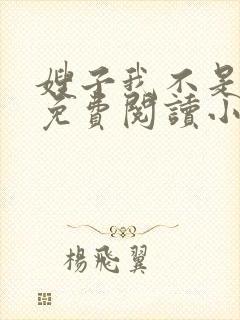 嫂子我不是
免費閱讀小
楊飛翼